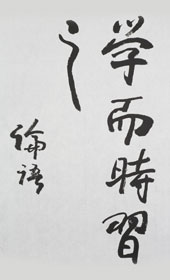 学而時習
之
論語